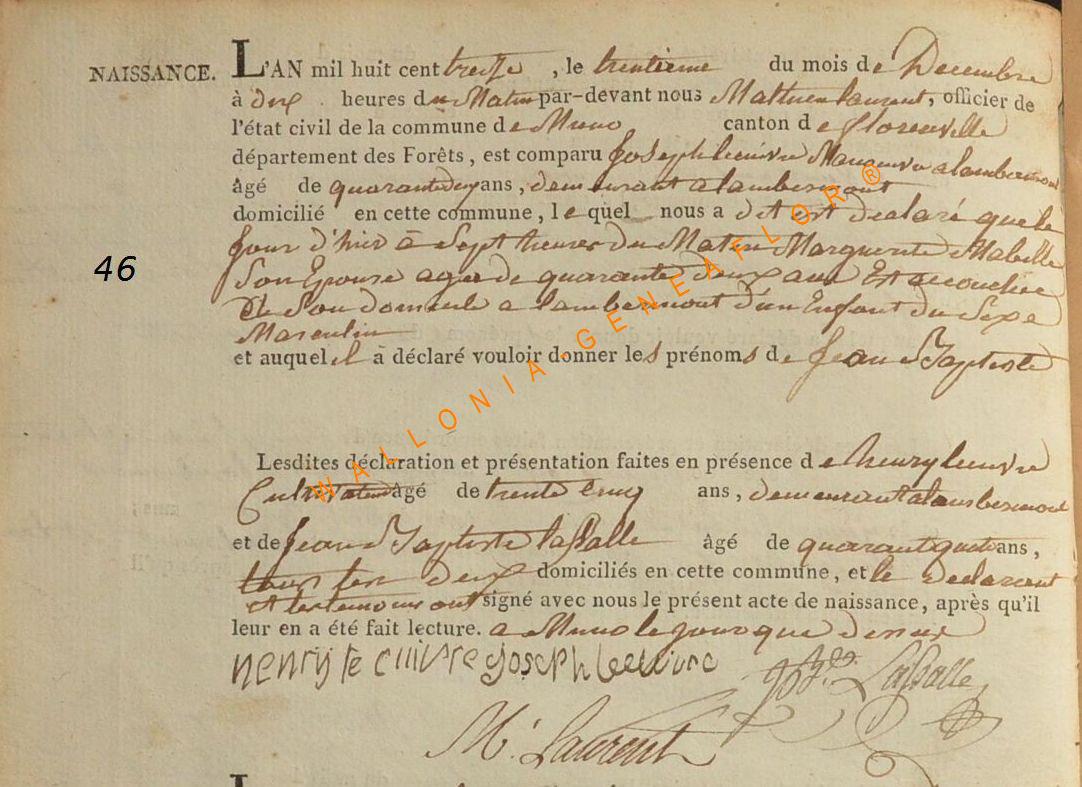 NAISSANCE. L'AN mil huit cent treize, le trentieme du mois de Decembre
à dix heures du Matin par-devant nous Mathieu laurent, officier de
l'état civil de la commune de Muno canton de florenville
département des Forêts, est comparu Joseph Manoeuvre a lambermont
âgé de quarante deux ans, demeurant a lambermont
domicilié en cette commune, lequel nous a dit et declaré que le
Jour d'hier à Sept heures du Matin Marguerite Mabille
46
Son Epouse agée de quarante deux ans Est accouchée
de Son domicile a lambermont d'un Enfant du Sexe
Masculin
et auquel il a déclaré vouloir donner les prénoms de Jean Baptiste
WALLONIA-GENEAFLOR ®
Lesdites déclaration et présentation faites en présence de henry
Cultivateur âgé de trente cinq ans, demeurant a lambermont
et de Jean Baptiste laSSalle âgé de quarant quatre ans,
tous les deux domiciliés en cette commune, et le declarant
et les temoins ont signé avec nous le présent acte de naissance, après qu'il
leur en a été fait lecture. a Muno le jour que dessus
henry le Joseph LaSSalle
M. Laurent
L